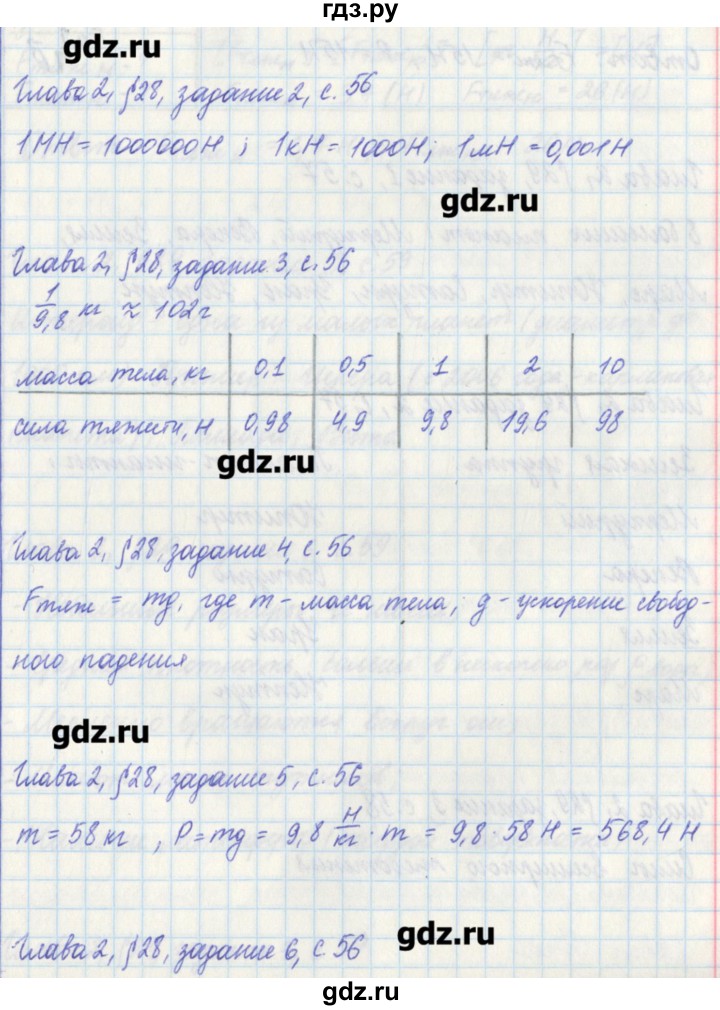 гдз.ру
gdz.ru
Глава 2, §28, задание 2, с. 56
1МН = 1000000Н ; 1кН = 1000Н; 1мН = 0,001Н
gdz.ru
Глава 2, §28, задание 3, с. 56
1/9,8 кг ≈ 102г
масса тела, кг 0,1 0,5 1 2 10
сила тяжести, Н 0,98 4,9 9,8 19,6 98
gdz.ru
Глава 2, §28, задание 4, с. 56
Fтяж = mg, где m - масса тела; g - ускорение свобод-
ного падения
gdz.ru
Глава 2, §28, задание 5, с. 56
m = 58 кг , P = mg = 9,8 Н/кг · m = 9,8 · 58 Н = 568,4 Н
gdz.ru
Глава 2, §28, задание 6, с. 56
gdz.ru